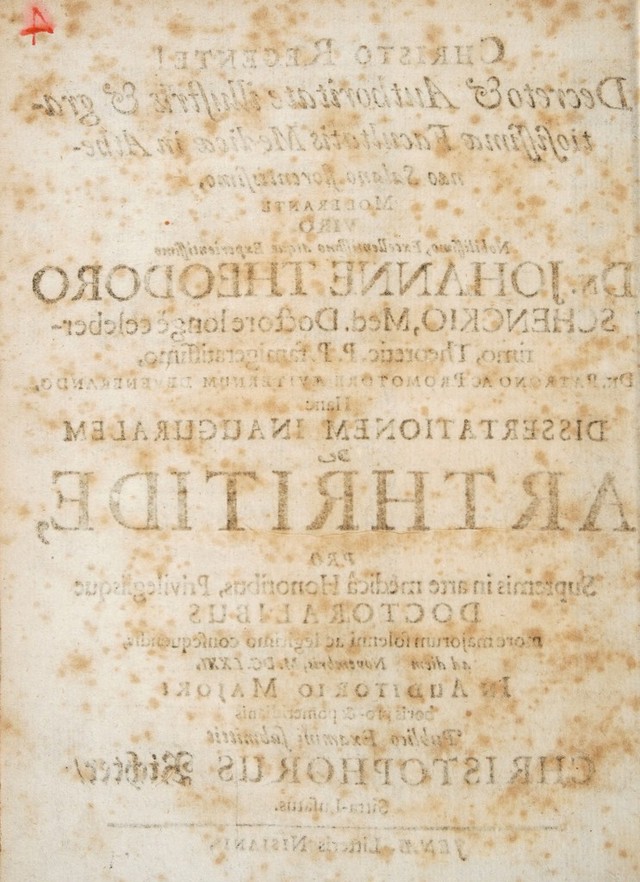 4
CHRISTO REGENTE!
Decreto & Authoritate illustris & gra-
tiosissimæ Facultatis Medicæ in Athe-
næo Salano florentissimo,
MODERANTE
VIRO
Nobilissimo, Excellentissimo atque Experientissimo
DN. JOHANNE THEODORO
SCHENCKIO, Med. Doctore longè celeber-
rimo, Theoretic. P. P. famigeratissimo,
DN. PATRONO AC PROMOTORE ÆVITERNUM DEVENERANDO,
Hanc
DISSERTATIONEM INAUGURALEM
DE
ARTHRITIDE,
PRO
Supremis in arte medicâ Honoribus, Privilegiisque
DOCTORALIBUS
more majorum solenni ac legitimo consequendis,
ad diem Novembris, M. DC. LXXI.
IN AUDITORIO MAJORI
horis pro- & pomeridianis
Publico Examini submittit
CHRISTOPHORUS Richter/
JENÆ, Litteris NISIANIS